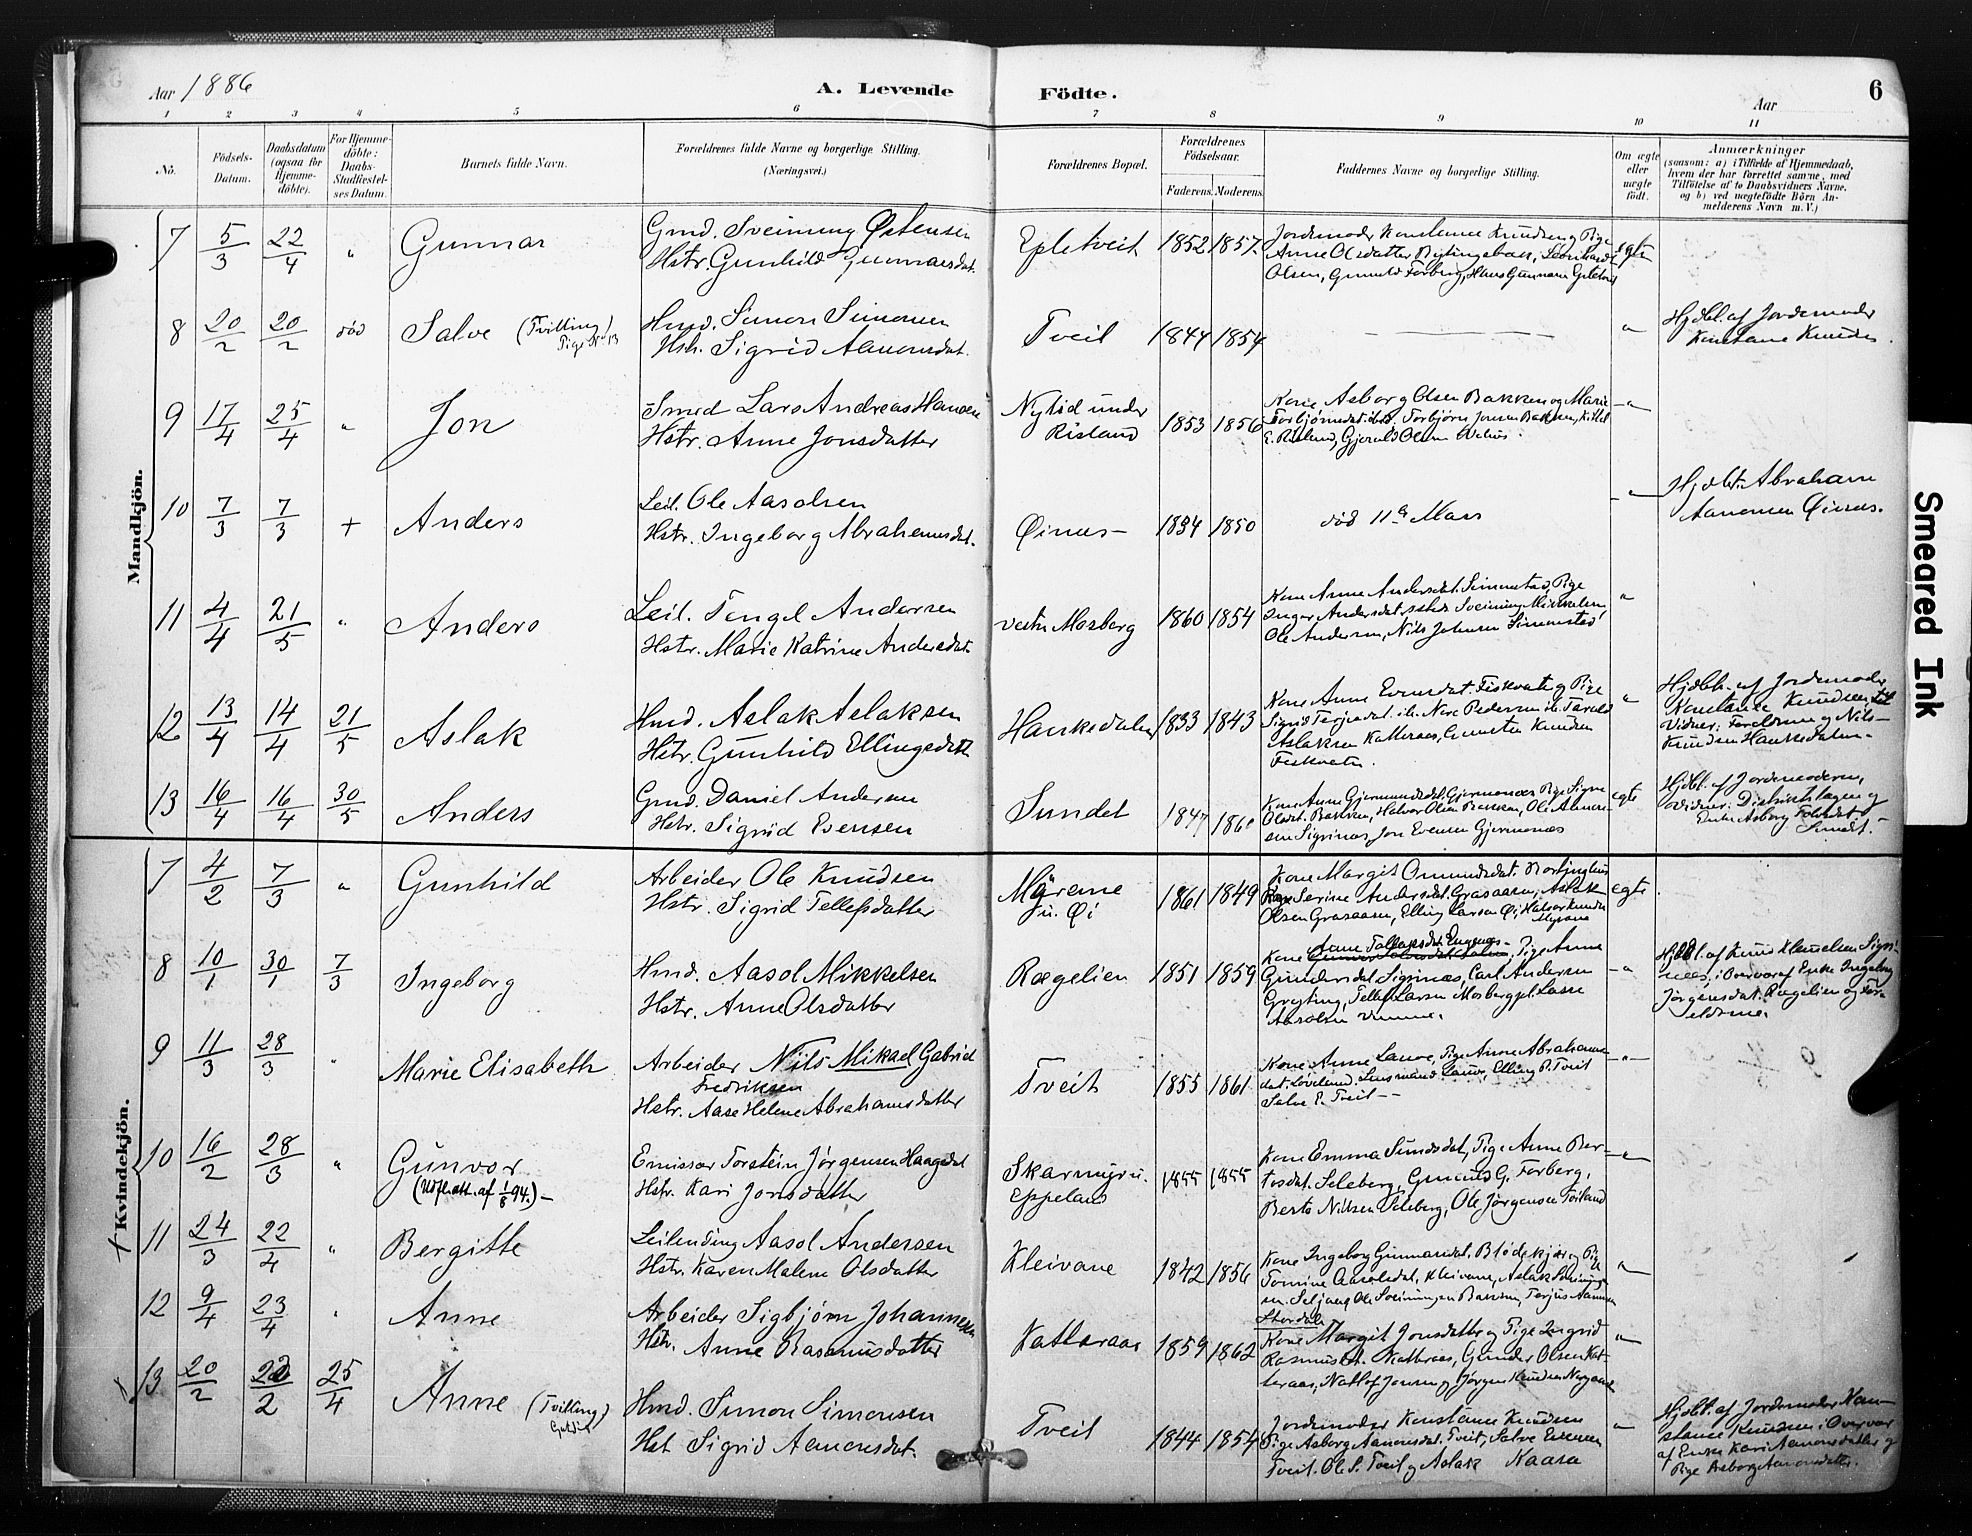 Aar 1886
A. Levende Födte.
Aar
6
1 2 3 4 5 6 7 8 9 10 11
No.
Födsels-
Datum.
Daabsdatum
(ogsaa for
Hjemme-
döbte).
For Hjemme-
döbte:
Daabs-
Stadfæstel-
ses Datum.
Barnets fulde Navn.
Forældrenes fulde Navne og borgerlige Stilling.
(Næringsvei.)
Forældrenes Bopæl.
Forældrenes
Födselsaar.
Faderens. Moderens.
Faddernes Navne og borgerlige Stilling.
Om ægte
eller
uægte
födt.
Anmærkninger
(saasom: a) i Tilfælde af Hjemmedaab,
hvem der har forrettet samme, med
Tilföielse af to Daabsvidners Navne,
og b) ved uægtefödte Börn An-
melderens Navn m. V.)
Mandkjön.
7 5/3 22/4 " Gunnar
Gmd. Sveinung Østensen
Hstr. Gunhild Gunnarsdat.
Epletveit 1852 1857
Jordemoder Konstance Knudsen og Pige
Anne Olsdatter
Olsen, Gunuld Forberg, Hans Gunnarsen Epletveit
egte
8 20/2 20/2 död Salve (Tvilling)
Pige No 13
Hmd. Simon Simonsen
Hstr. Sigrid Aamonsdat.
Tveit 1844 1854
"
Hjdbt. af Jordemoder
Konstance Knudsen
9 17/4 25/4 " Jon
Smed Lars Andreas Hansen
Hstr. Anne Jonsdatter
Nylid under
Risland
1853 1856
Kone Asborg Olsen Bakken og Marie
Torbjörnsdat. ibid. Torbjörn Jonsen Bakken, Kittel
E. Risland, Gjeruld Olsen
"
10 7/3 7/3 + Anders
Leil. Ole Aasolsen
Hstr. Ingeborg Abrahamsdat.
Øinæs 1834 1850
död 11te Mars
"
Hjdbt. Abraham
Aanonsen Øinæs.
11 4/4 21/5 " Anders
Leil. Tengel Andersen
Hstr. Marie Katrine Andersdat.
vestre Mosberg 1860 1854
Kone Anne Andersdat. Simonstad, Pige
Inger Andersdat. Sveinung Mikkelsen,
Ole Andersen, Nils Johnsen Simonstad
"
12 13/4 14/4 21/5 Aslak
Hmd. Aslak Aslaksen
Hstr. Gunhild Ellingsdatt.
Hanksedalen 1833 1843
Kone Anne Evensdat. Fiskvatn og Pige
Sigrid Terjesdat. ib. Nere Pedersen ib. Tarald
Aslaksen Katteraas, Gunsten Knudsen
Fiskvatn.
"
Hjdbt. af Jordemoder
Konstance Knudsen, Til
Vidner: Foreldrene og Nils
Knudsen Hanksedalen
13 16/4 16/4 30/5 Anders
Gmd. Daniel Andersen
Hstr. Sigrid Evensen
Sundet 1847 1860
Kone Anne Gjermundsdat. Gjermones Pige Signe
Olsdat. Bakken, Halvor Olsen Bakken, Ole Aanon-
sen Sigrinæs, Jon Evensen Gjermones
egte
Hjdbt. af Jordemoderen,
Vidner: Distriktslægen og
Enke Asborg
Sundet.
Kvindekjön.
7 4/2 7/3 " Gunhild
Arbeider Ole Knudsen
Hstr. Sigrid Tellefsdatter
Myrene
u. Øi
1861 1849
Kone Margit Omundsdat.
Serine Andersdat. Graaaasen, Aslak
Olsen Graaaasen, Elling Larsen Øi, Halvor Knudsen
Myrene
egte
8 10/1 30/1 7/3 Ingeborg
Hmd. Aasol Mikkelsen
Hstr. Anne Olsdatter
Rægelien 1851 1859
Kone Anne Tallaksdat. Engenes, Pige Anne
Gundersdat. Sigrinæs, Carl Andersen
Grygting, Tellef Larsen Mosberg pl. Lasse
Absolsen Vimme.
"
Hjdbt. af Knud Klemetsen Sigri-
næs, i Overvær af Enke Ingeborg
Jörgensdat. Rægelien og For-
eldrene.
9 11/3 28/3 " Marie Elisabeth
Arbeider Nils Mikael Gabriel
Fredriksen
Hstr. Aase Helene Abrahamsdatter
Tveit 1855 1861
Kone Anne Lauve, Pige Anne Abrahams-
dat. Löveland. Lensmand Lauve, Elling P. Tveit
Salve P. Tveit
"
10 16/2 28/3 " Gunvor
(Udfl.att. af 1/8 94.)
Emissær Torstein Jörgensen Haugedal
Hstr. Kari Jonsdatter
Skarmyr u.
Eppeland
1855 1855
Kone Emma Sundsdal, Pige Anne Ber-
tosdat. Seleberg, Gunuld G. Forberg,
Berto Nilsen Seleberg, Ole Jörgensen
"
11 24/3 22/4 " Bergitte
Leilending Aasol Andersen
Hstr. Karen Malene Olsdatter
Kleivane 1842 1856
Kone Ingeborg Gunnarsdat. Blödekjær og Pige
Tomine Aasolsdat. Kleivane, Aslak
sen Seljaas, Ole Sveinungsen Bakken, Terjus Aamon
Stordal
"
12 9/4 23/4 " Anne
Arbeider Sigbjörn Johannesen
Hstr. Anne Rasmusdatter
Katteraas 1859 1862
Kone Margit Jonsdatter og Pige Ingrid
Rasmusdt. Katteraas, Gunder Olsen Kat-
teraas, Notlof Jonsen og Jörgen Knudsen
"
13 20/2 20/2 25/4 Anne (Tvilling)
Hmd. Simon Simonsen
Hst. Sigrid Aamonsdat.
Tveit 1844 1854
Jordemoder Konstance Knudsen
Pige Asborg Aanonsdat. Tveit, Salve Evensen
Tveit. Ole S. Tveit og Aslak Naasa
"
Hjdbt. af Jordemoder Kon-
stance Knudsen i Overvær
af Enke Kari Aamonsdatter og
Pige Asborg Aamonsdatter.
Smeared Ink